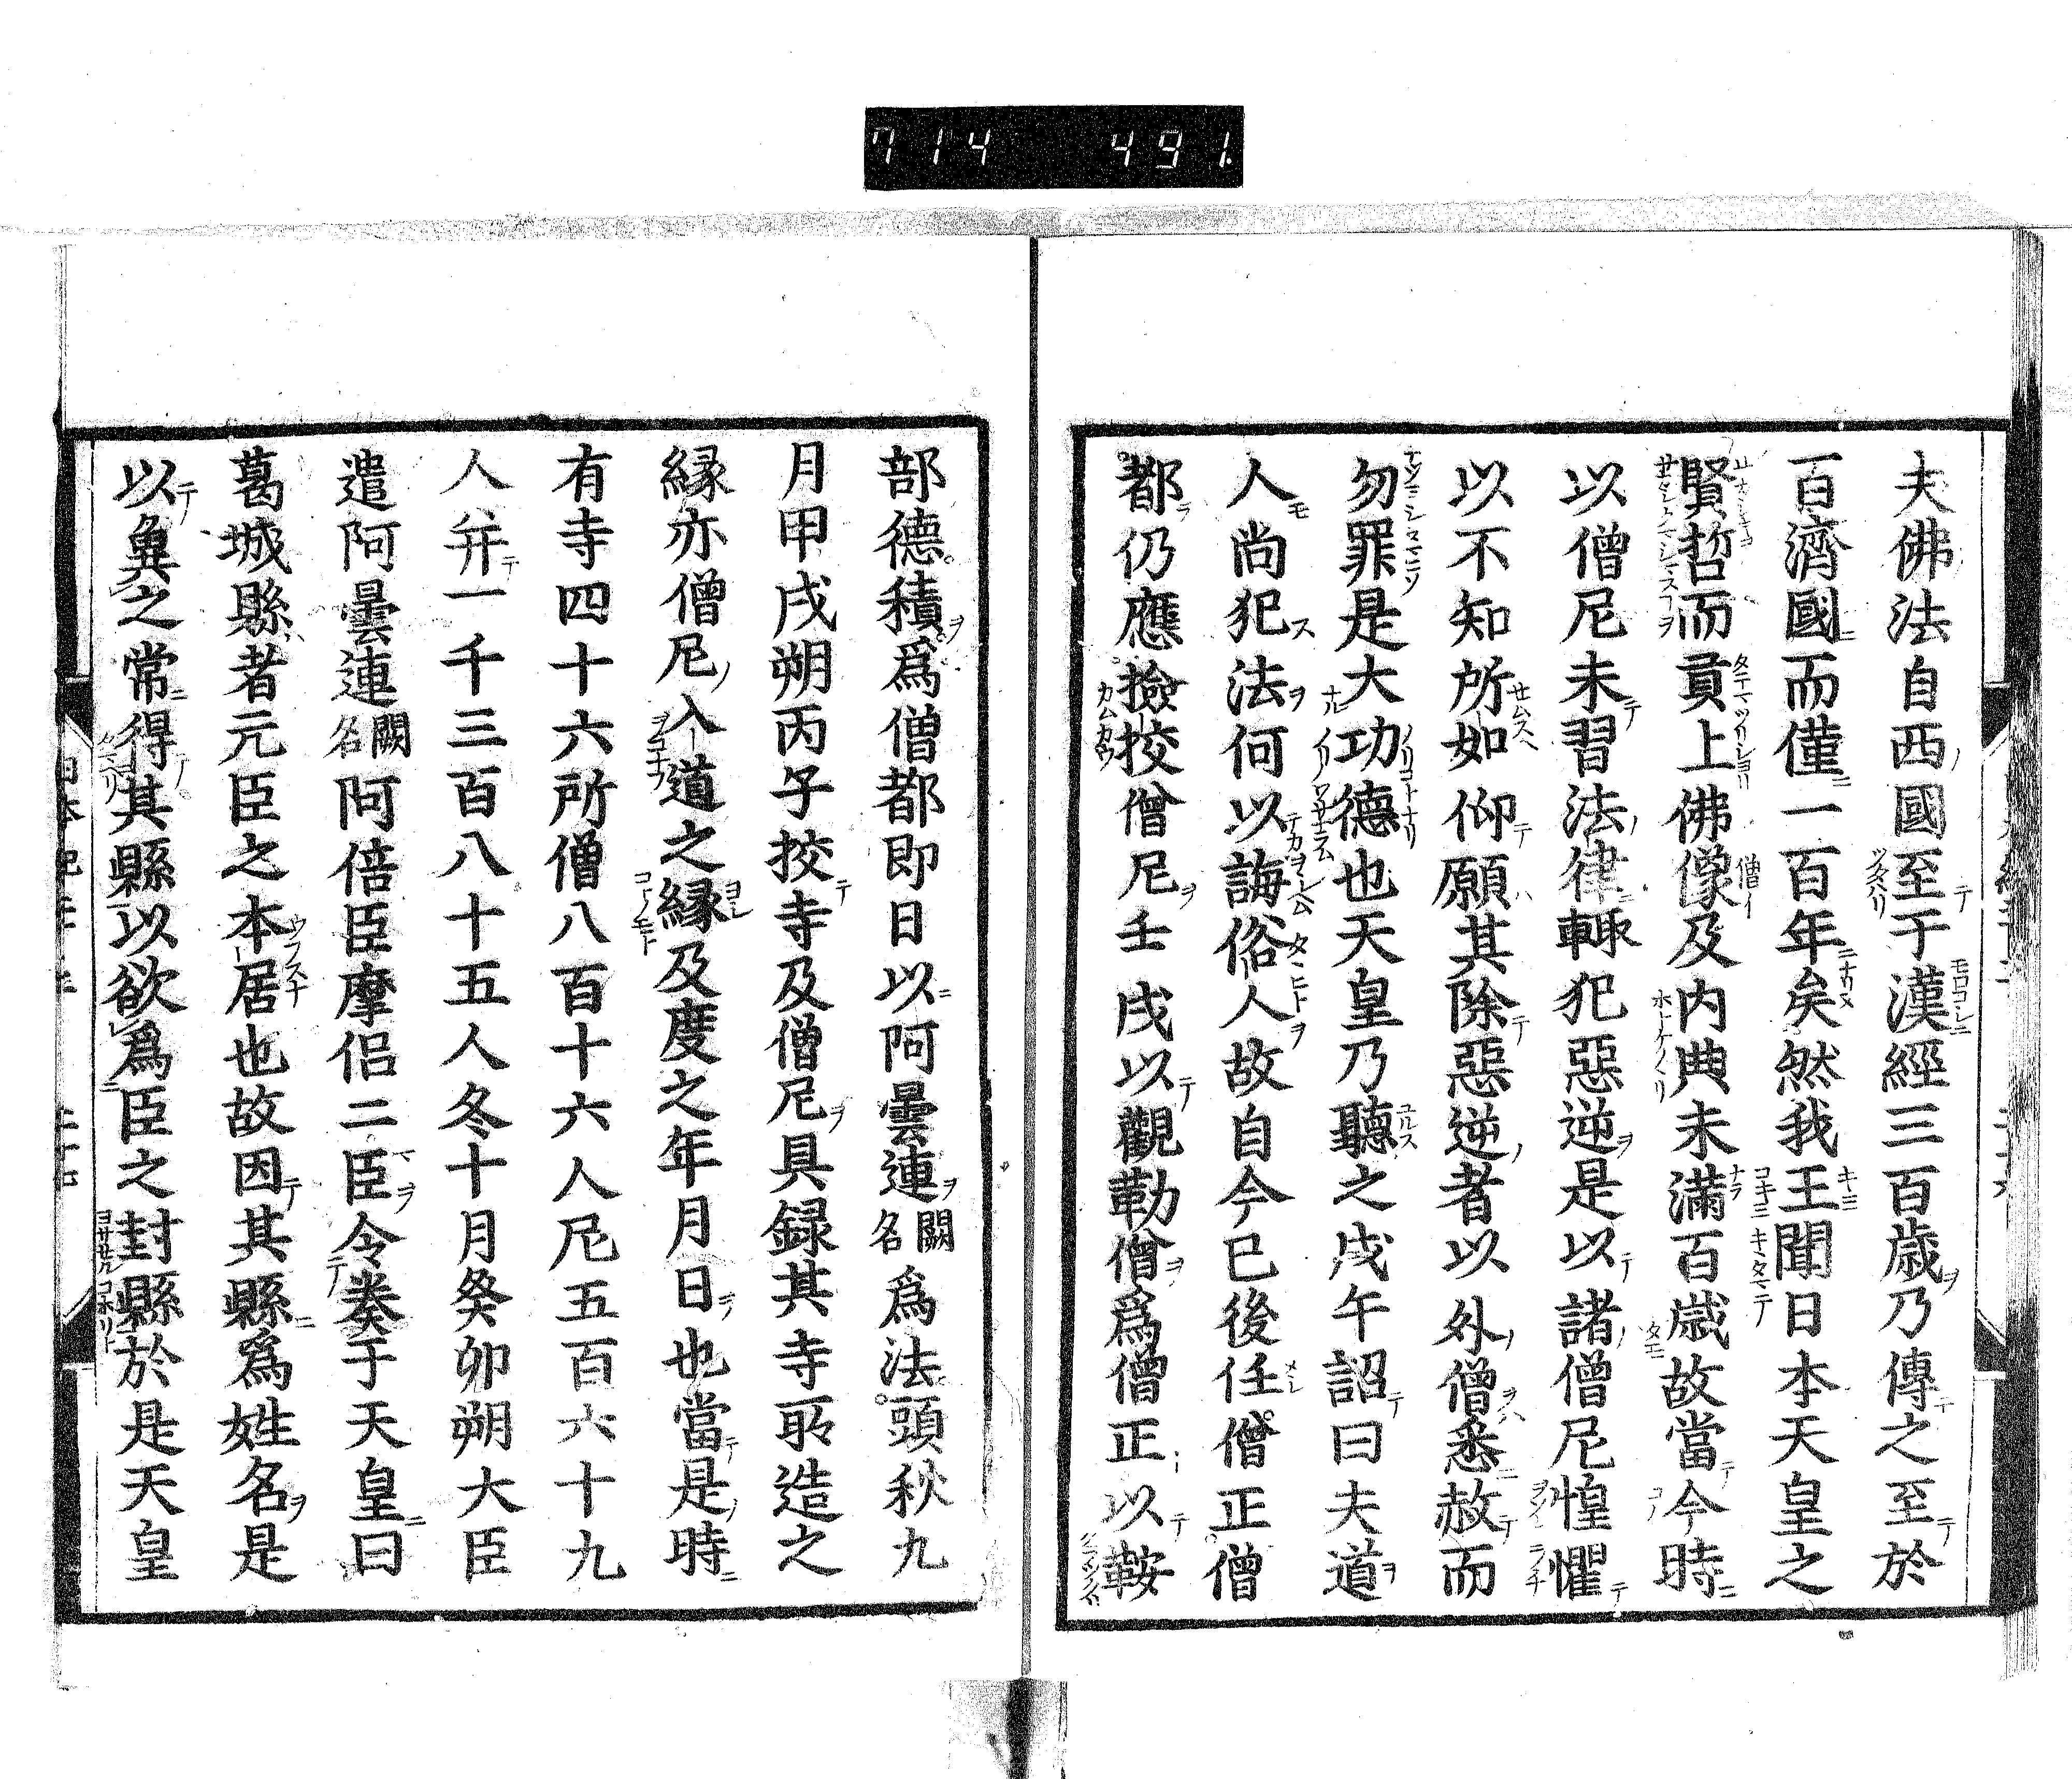 714 491
夫佛法自西國至于漢經三百歳乃傳之至於
百濟國而僅一百年矣然我王聞日本天皇之
賢哲而貢上佛像及内典未滿百歳故當今時
以僧尼未習法律輙犯惡逆是以諸僧尼惶懼
以不知所如仰願其除惡逆者以外僧悉赦而
勿罪是大功德也天皇乃聽之戊午詔曰夫道
人尚犯法何以誨俗人故自今已後任僧正僧
都仍應撿挍僧尼壬戌以觀勒僧爲僧正以鞍
部德積爲僧都即日以阿曇連闕名爲法頭秋九
月甲戌朔丙子挍寺及僧尼具録其寺所造之
縁亦僧尼入道之縁及度之年月日也當是時
有寺四十六所僧八百十六人尼五百六十九
人并一千三百八十五人冬十月癸卯朔大臣
遣阿曇連闕名阿倍臣摩侶二臣令奏于天皇曰
葛城縣者元臣之本居也故因其縣爲姓名是
以冀之常得其縣以欲爲臣之封縣於是天皇